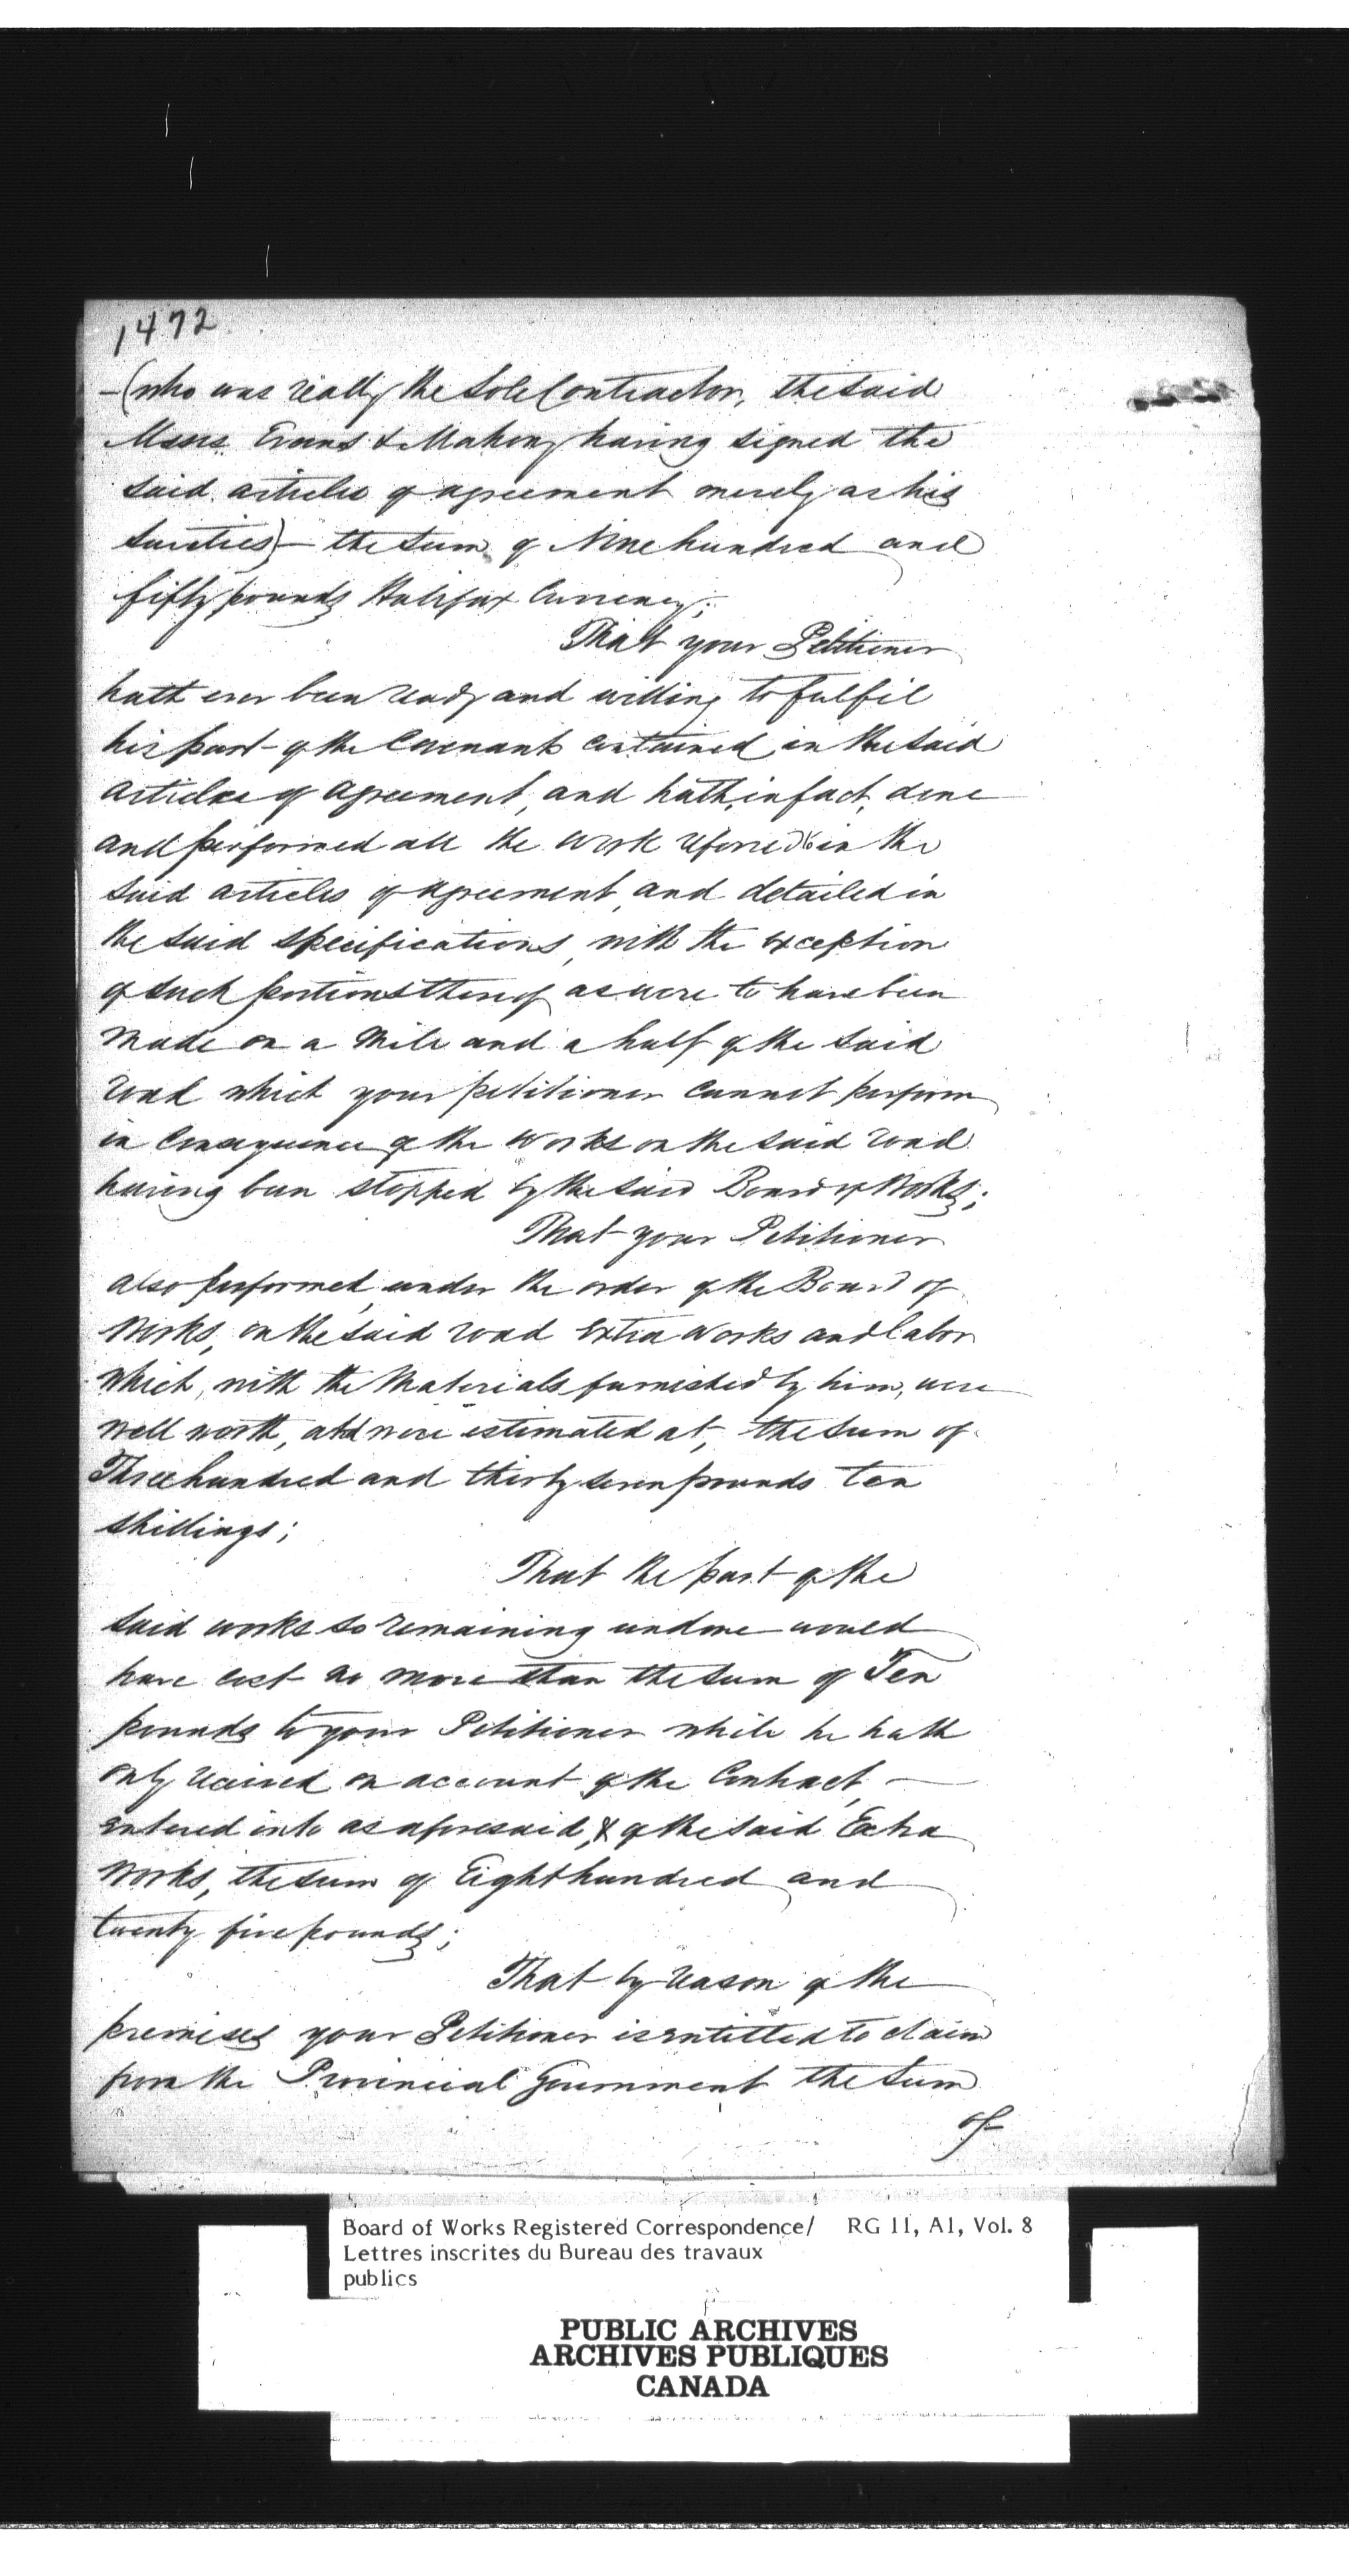 1472
-(who was really the Sole Contractor, the said
Messrs. Evans & Mahony having signed the
said articles of agreement merely as his
Sureties)- the sum of Nine hundred and
fifty pounds Halifax Currency;
That your Petitioner
hath ever been ready and willing to fulfil
his part of the Covenants contained in the said
articles of agreement, and hath, in fact, done
and performed all the work referred to in the
said articles of agreement, and detailed in
the said specifications, with the exception
of such portions thereof as were to have been
made on a mile and a half of the said
road which your petitioner cannot perform
in Consequence of the works on the said road
having been stopped by the said Board of Works;
That your Petitioner
also performed, under the order of the Board of
Works, on the said road extra works and labor
which, with the Materials furnished by him, were
well worth, and were estimated at, the sum of
Three hundred and thirty seven pounds ten
shillings;
That the part of the
said works so remaining undone would
have cost no more than the sum of Ten
pounds to your Petitioner while he hath
only received on account of the Contract,
entered into as aforesaid, & of the said Extra
Works, the sum of Eight hundred and
twenty five pounds;
That by reason of the
premises your Petitioner is entitled to claim
from the Provincial Government the sum
of
Board of Works Registered Correspondence/ RG 11, A1, Vol. 8
Lettres inscrites du Bureau des travaux
publics
PUBLIC ARCHIVES
ARCHIVES PUBLIQUES
CANADA